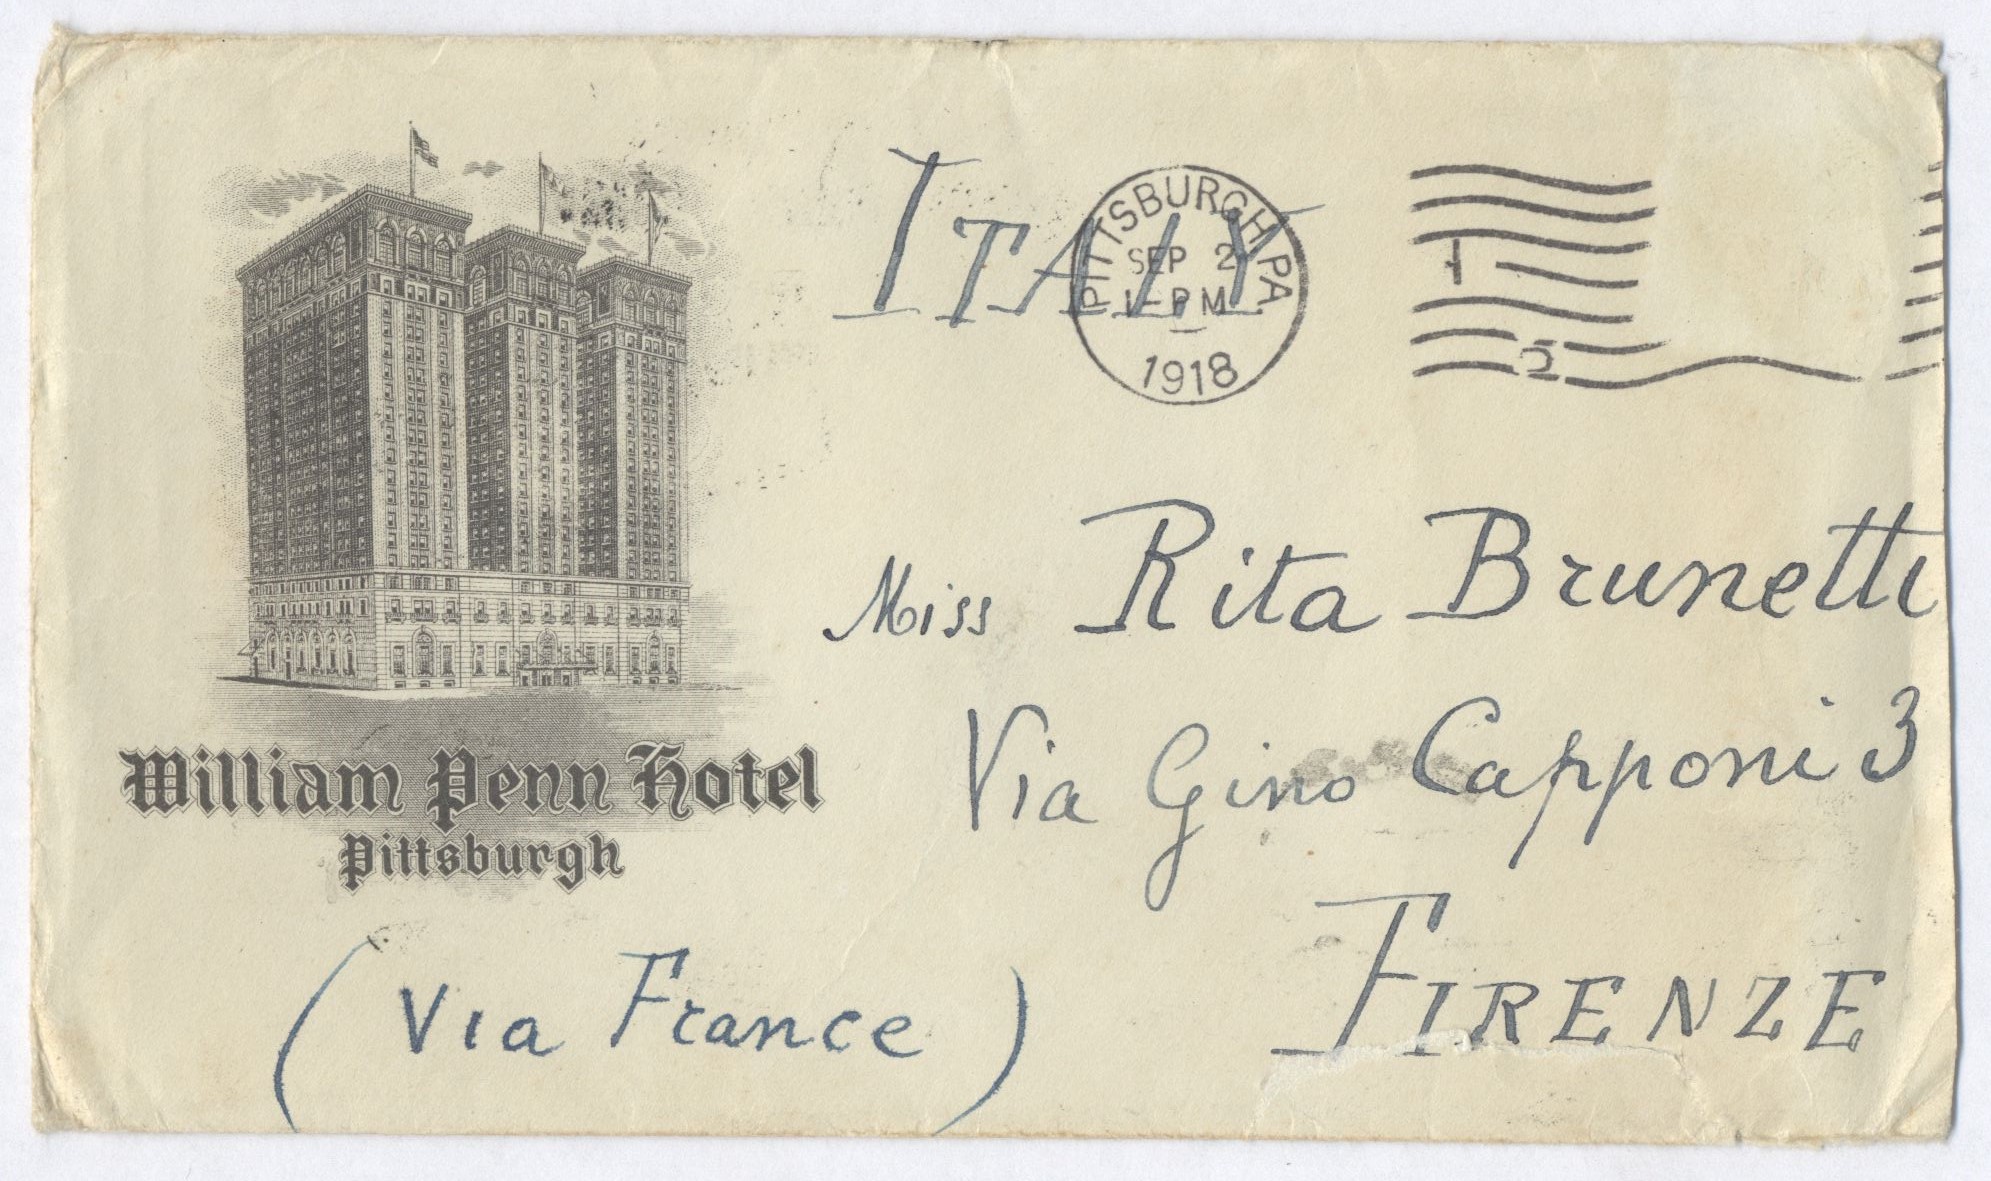 ITALY
PITTSBURGH PA
SEP 2
1-PM
1918
1
2
Miss Rita Brunetti
Via Gino Capponi 3
FIRENZE
William Penn Hotel
Pittsburgh
(Via France)